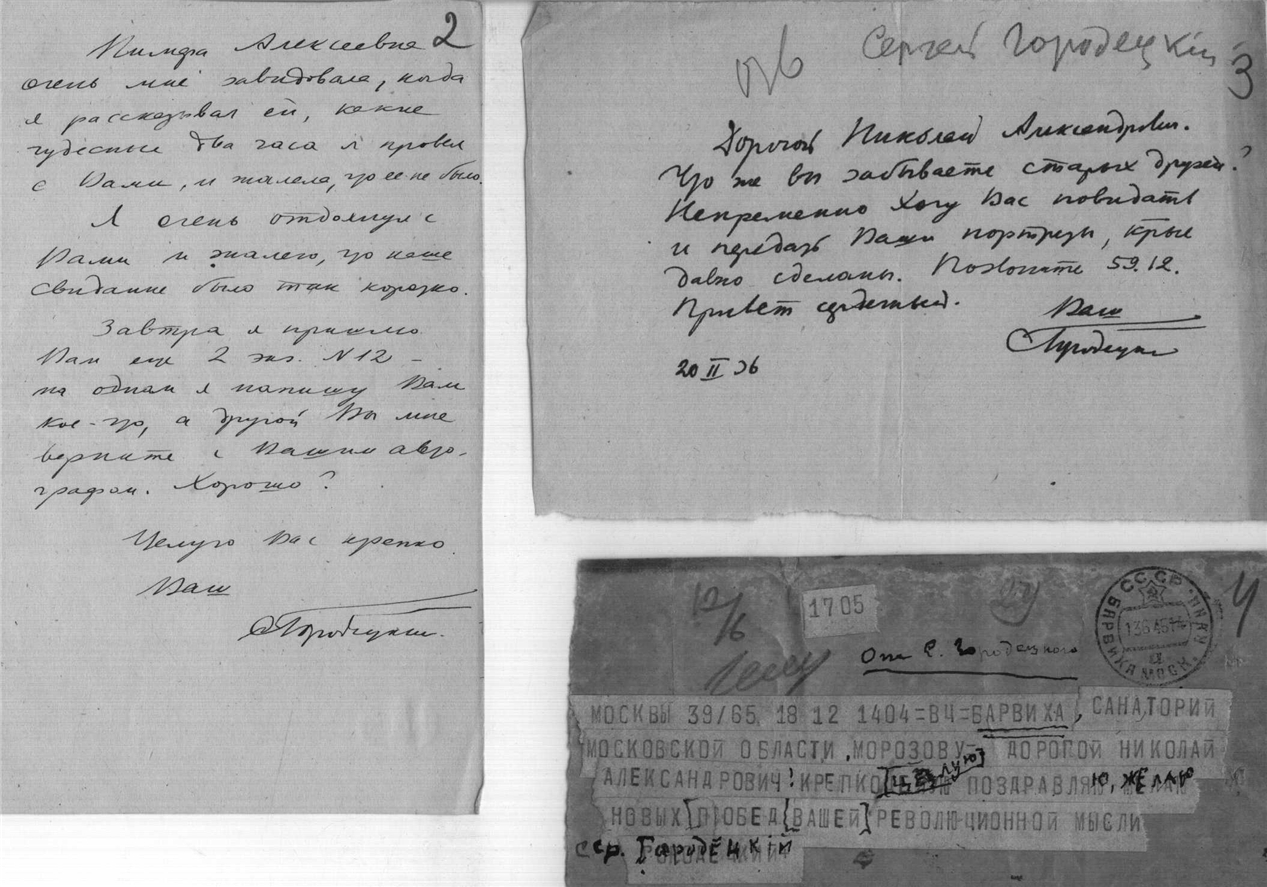 2
Нимфа Алексеевна
очень мне завидовала, когда
я рассказывал ей, какие
чудесные два часа я провел
с Вами, и жалела, что ее не было.
Я очень отдохнул с
Вами и жалею, что наше
свидание было так коротко.
Завтра я пришлю
Вам еще 2 экз. N12 –
на одном я напишу Вам
кое-что, а другой Вы мне
верните с Вашим авто-
графом. Хорошо?
Целую Вас крепко.
Ваш
СГородецкий.
Сергей Городецкій
3
Дорогой Николай Александрович.
Что же вы забываете старых друзей?
Непременно хочу Вас повидать
и передать Ваши портреты, к-рые
давно сделаны. Позвоните 59.12.
Привет сердечный.
Ваш
СГородецкий
20 II 36
4
12/6
1705
27
СССР
БАРВИХА МОСК.
От С. Городецкого
МОСКВЫ 39/65 18 12 1404=ВЧ=БАРВИХА, САНАТОРИЙ
МОСКОВСКОЙ ОБЛАСТИ МОРОЗОВУ= ДОРОГОЙ НИКОЛАЙ
АЛЕКСАНДРОВИЧ! КРЕПКО [ЦЕЛУЮ] ПОЗДРАВЛЯЮ, ЖЕЛАЮ
НОВЫХ [ПОБЕД] [ВАШЕЙ] РЕВОЛЮЦИОННОЙ МЫСЛИ
сер. Городецкій